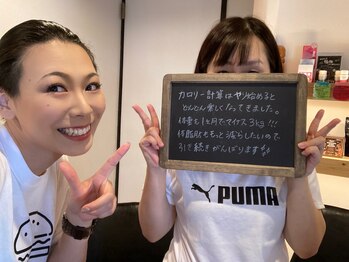 カロリー計算はヤリ始めると
どんどん楽しくなってきました。
体重も1ヶ月でマイナス3kg!!!
体脂肪ももっと減らしたいので
引き続きがんばります
PUMA